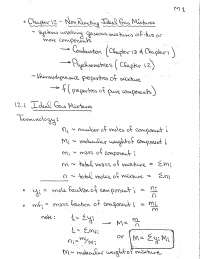 M1
• Chapter 12 - Non Reacting Ideal Gas Mixtures
- Systems involving gaseous mixtures of two or
more components
→ Combustion (Chapter 13 & Chapter 1)
→ Psychrometrics (Chapter 12)
- thermodynamic properties of mixture
→ f (properties of pure components)
12.1 Ideal Gas Mixtures
Terminology:
ni = number of moles of component i
Mi = molecular weight of component i
mi = mass of component i
m = total mass of mixture = Σmi
n = total moles of mixture = Σni
• yi = mole fraction of component i = ni/n
• mfi = mass fraction of component i = mi/m
note: 1 = Σyi
1 = Σmfi → M = m/n
ni = mi/Mi or M = Σyi Mi
M = molecular weight of mixture